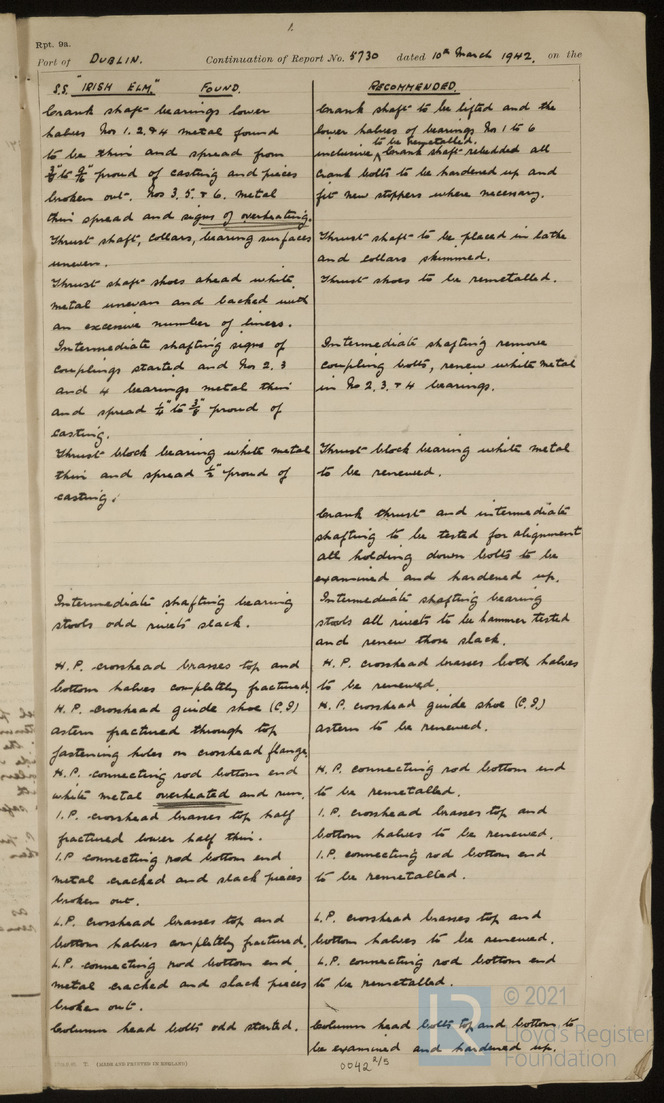 1.
Rpt. 9a.
Port of DUBLIN. Continuation of Report No. 5730 dated 10th March 1942. on the
S.S. "IRISH ELM." FOUND.
Crank shaft bearings lower
halves Nos 1. 2. & 4 metal found
to be thin and spread from
proud of casting and pieces
broken out. Nos 3. 5. & 6. metal
thin spread and signs of overheating.
Thrust shaft, collars, bearing surfaces
uneven.
Thrust shaft shoes ahead white
metal unevan and backed with
an excessive number of liners.
Intermediate shafting signs of
couplings started and Nos 2. 3
and 4 bearings metal thin
and spread 1/4" to 3/8" proud of
casting.
Thrust block bearing white metal
thin and spread 1/2" proud of
casting.
Intermediate shafting bearing
stools odd rivets slack.
H.P. crosshead brasses top and
bottom halves completely fractured
H.P. crosshead guide shoe (C.I)
astern fractured through top
fastening holes on crosshead flange.
H.P. connecting rod bottom end
white metal overheated and run.
I.P. crosshead brasses top half
fractured lower half thin.
I.P connecting rod bottom end
metal cracked and slack pieces
broken out.
L.P. crosshead brasses top and
bottom halves completely fractured.
L.P. connecting rod bottom end
metal cracked and slack pieces
broken out.
Column head bolts odd started.
RECOMMENDED.
Crank shaft to be lifted and the
lower halves of bearings Nos 1 to 6
to be remetalled.
inclusive, Crank shaft rebedded all
crank bolts to be hardened up and
fit new stoppers where necessary.
Thrust shaft to be placed in lathe
and collars skimmed.
Thrust shoes to be remetalled.
Intermediate shafting remove
coupling bolts, renew white metal
in No 2. 3. & 4 bearings.
Thrust block bearing white metal
to be renewed.
Crank thrust and intermediate
shafting to be tested for alignment
all holding down bolts to be
examined and hardened up.
Intermediate shafting bearing
stools all rivets to be hammer tested
and renew those slack.
H.P. crosshead brasses both halves
to be renewed.
H.P. crosshead guide shoe (C.I)
astern to be renewed.
H.P. connecting rod bottom end
to be remetalled.
I.P. crosshead brasses top and
bottom halves to be renewed.
I.P. connecting rod bottom end
to be remetalled.
L.P. crosshead brasses top and
bottom halves to be renewed.
L.P. connecting rod bottom end
to be remetalled.
Column head bolts top and bottom to
be examined and hardened up.
(MADE AND PRINTED IN ENGLAND)
0042 2/5
© 2021
Lloyd's Register
Foundation